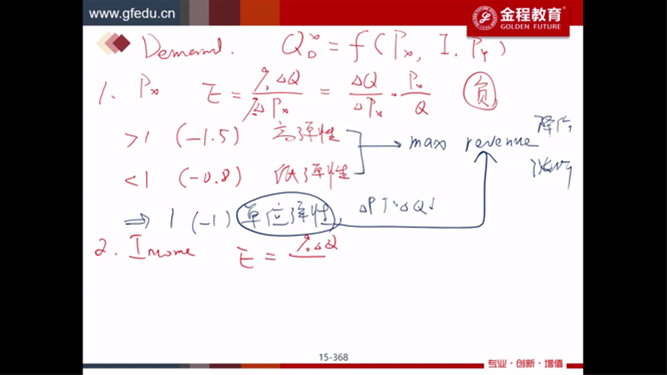 www.gfedu.cn
金程教育
GOLDEN FUTURE
Demand. Q_D^x = f(Px, I. PY)
1. Px E = %ΔQ/%ΔPx = ΔQ/ΔPx · Px/Q 负
>1 (-1.5) 高弹性 → max revenue 降价
<1 (-0.8) 低弹性
⇒ 1 (-1) 单位弹性, ΔP↑ ΔQ↓
2. Income E = %ΔQ
15-368
专业·创新·增值